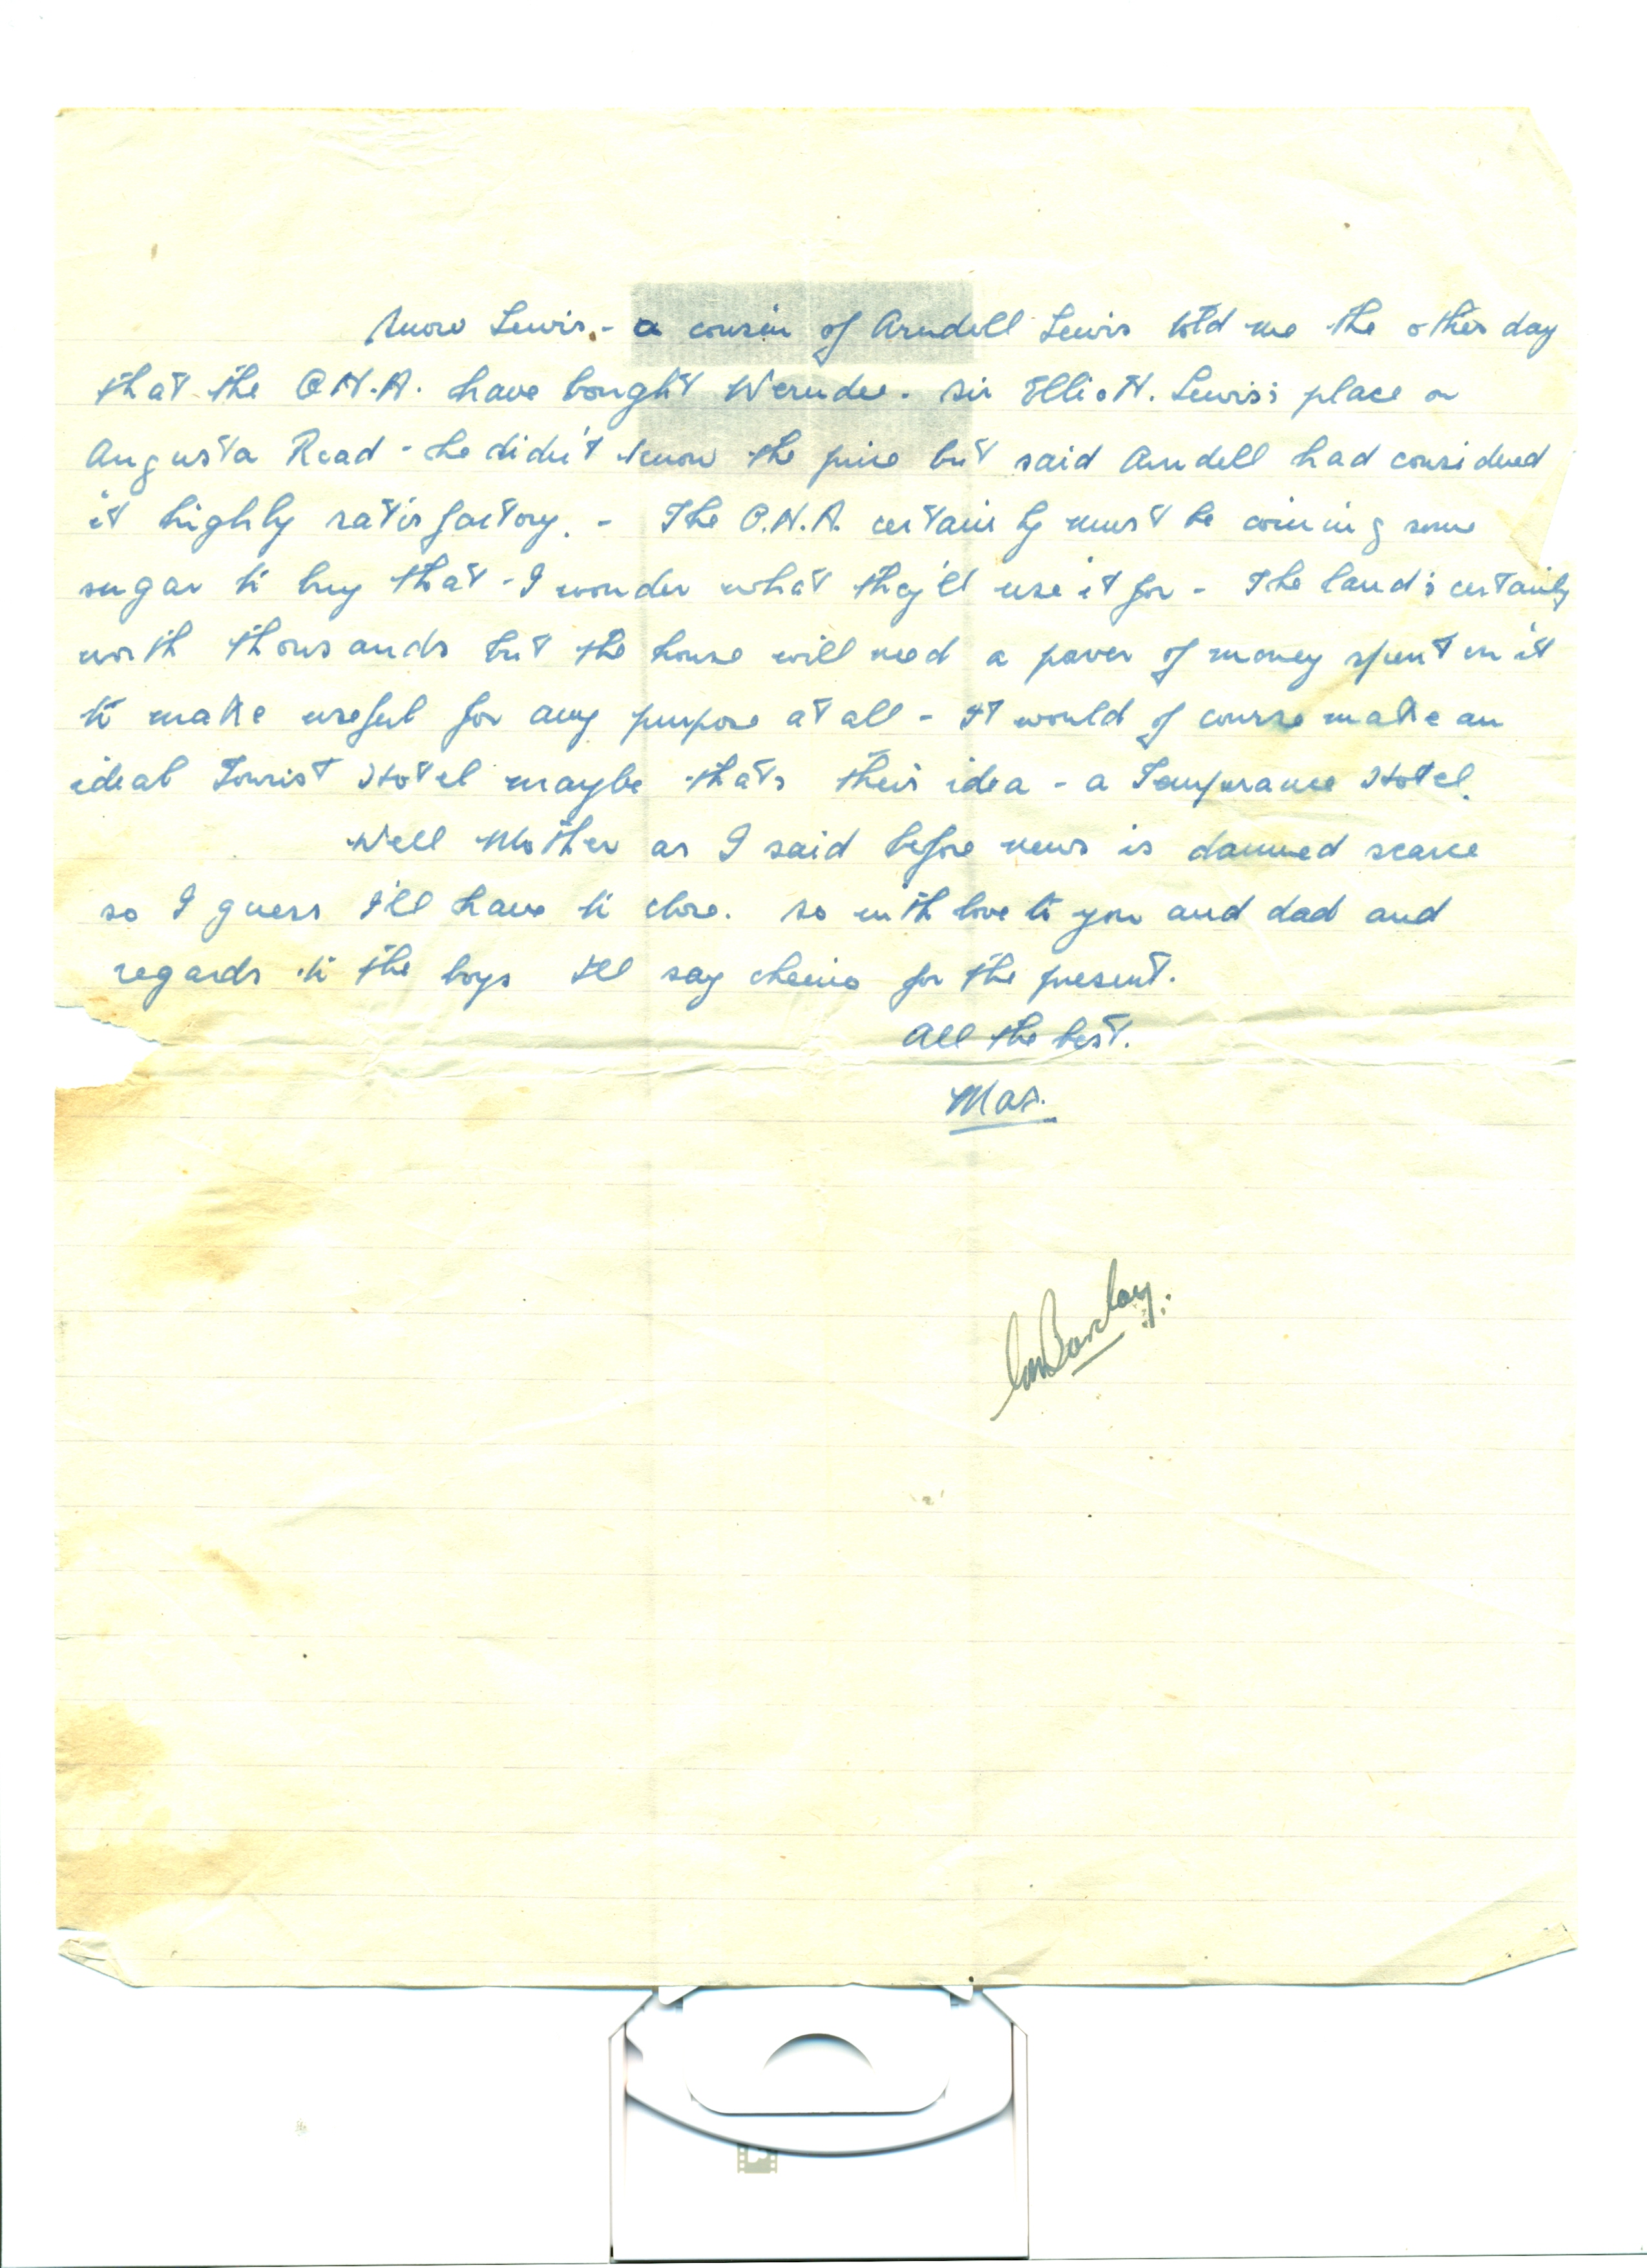 Snow Lewis - a cousin of Arndell Lewis told me the other day
that the C.H.A. have bought Werndee. Sir Elliott. Lewis's place on
Augusta Road - he didn't know the price but said Arndell had considered
it highly satisfactory. - The C.H.A. certainly must be coining some
sugar to buy that - I wonder what they'll use it for - The land's certainly
worth thousands but the house will need a power of money spent on it
to make useful for any purpose at all - It would of course make an
ideal Tourist Hotel maybe thats their idea - a Temperance Hotel.
Well Mother as I said before news is damned scarce
so I guess I'll have to close. So with love to you and dad and
regards to the boys I'll say cheerio for the present.
All the best.
Max.
Barclay.